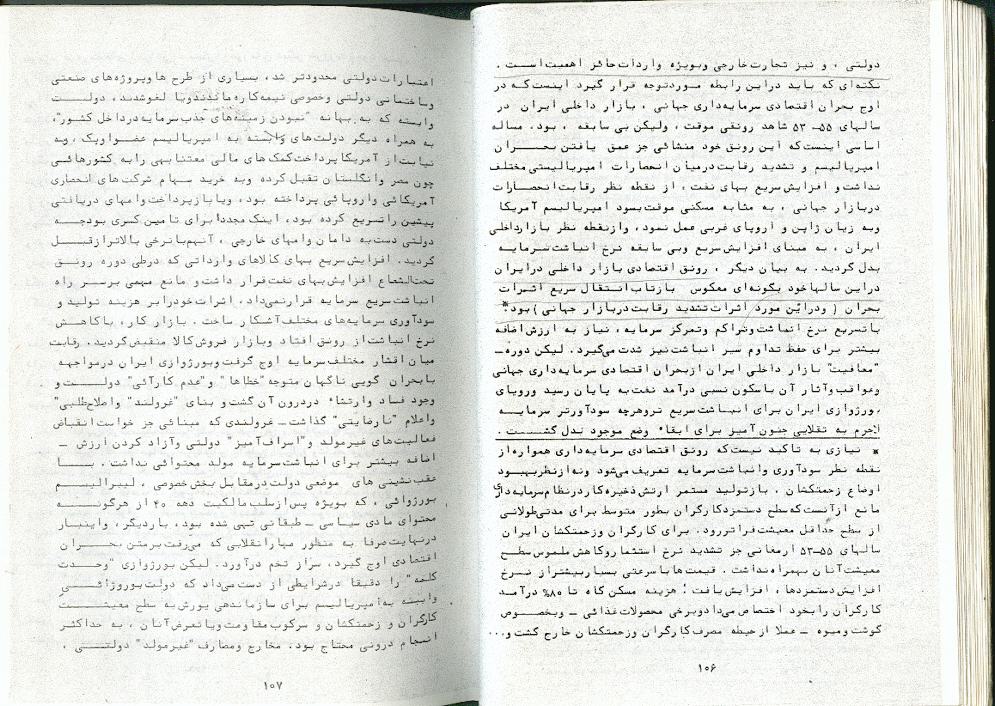 دولتی ، و نیز تجارت خارجی وبویژه واردات حائز اهمیت است .
نکته‌ای که باید در این رابطه مورد توجه قرار گیرد اینست که در
اوج بحران اقتصادی سرمایه‌داری جهانی ، بازار داخلی ایران در
سالهای ۵۵ــ ۵۳ شاهد رونقی موقت ، ولیکن بی سابقه ، بود. مساله
اساسی اینست که این رونق خود منشائی جز عمق یافتن بحــران
امپریالیسم و تشدید رقابت درمیان انحصارات امپریالیستی مختلف
نداشت و افزایش سریع بهای نفت ، از نقطه نظر رقابت انحصارات
دربازار جهانی ، به مثابه مسکنی موقت بسود امپریالیسم آمریکا
وبه زیان ژاپن و اروپای غربی عمل نمود، وازنقطه نظر بازارداخلی
ایران ، به مبنای افزایش سریع وبی سابقه نرخ انباشت سرمایه
بدل گردید. به بیان دیگر ، رونق اقتصادی بازار داخلی درایران
دراین سالهاخود بگونه‌ای معکوس بازتاب انتقال سریع اثرات
بحران ( ودراین مورد اثرات تشدید رقابت دربازار جهانی ) بود*
باتسریع نرخ انباشت وتراکم وتمرکز سرمایه، نیاز به ارزش اضافه
بیشتر برای حفظ تداوم سیر انباشت نیز شدت می‌گیرد. لیکن دوره‌ــ
"معافیت" بازار داخلی ایران ازبحران اقتصادی سرمایه داری جهانی
وعواقب وآثار آن باسکون نسبی درآمد نفت به پایان رسید ورویای
بورژوازی ایران برای انباشت سریع تروهرچه سودآورتر سرمایه
لاجرم به تقلایی جنون آمیز برای ابقاء وضع موجود بدل گشت .
* نیازی به تاکید نیست که رونق اقتصادی سرمایه داری همواره از
نقطه نظر سودآوری وانباشت سرمایه تعریف می‌شود ونه‌ازنظربهبود
اوضاع زحمتکشان . بازتولید مستمر ارتش ذخیره کار درنظام سرمایه‌داری
مانع ازآنست که سطح دستمزدکارگران بطور متوسط برای مدتی طولانی
از سطح حداقل معیشت فراتررود. برای کارگران وزحمتکشان ایران
سالهای ۵۵ــ۵۳ ارمغانی جز تشدید نرخ استثمار وکاهش ملموس سطح
معیشت آنان بهمراه نداشت . قیمت ها با سرعتی بسیار بیشتر از نرخ
افزایش دستمزدها ، افزایش یافت ؛ هزینه مسکن گاه تا ۸۰% درآمد
کارگران را بخود اختصاص می‌داد وبرخی محصولات غذائی ــ وبخصوص
گوشت ومیوه ــ عملا از حیطه مصرف کارگران وزحمتکشان خارج گشت و...
۱۰۶
اعتبارات دولتی محدودتر شد، بسیاری از طرح ها وپروژه های صنعتی
وساختمانی دولتی وخصوصی نیمه کاره ماندند ویا لغو شدند، دولت
وابسته که به بهانه "نبودن زمینه‌های جذب سرمایه درداخل کشور"،
به همراه دیگر دولت های وابسته به امپریالیسم عضو اوپک ، وبه
نیابت از آمریکا پرداخت کمک های مالی معتنابهی را به کشورهائی
چون مصر وانگلستان تقبل کرده وبه خرید سهام شرکت های انحصاری
آمریکائی واروپائی پرداخته بود، ویا بازپرداخت وامهای دریافتی
پیشین راتسریع کرده بود، اینک مجددا برای تامین کسری بودجه
دولتی دست به دامان وامهای خارجی ، آنهم با نرخی بالاتر از قبل
گردید. افزایش سریع بهای کالاهای وارداتی که درطی دوره رونق
تحت الشعاع افزایش بهای نفت قرار داشت و مانع مهمی برسر راه
انباشت سریع سرمایه قرار نمی‌داد ، اثرات خودرا بر هزینه تولید و
سودآوری سرمایه‌های مختلف آشکار ساخت . بازار کار، باکاهش
نرخ انباشت از رونق افتاد وبازار فروش کالا منقبض گردید. رقابت
میان اقشار مختلف سرمایه اوج گرفت وبورژوازی ایران درمواجهه
بابحران گویی ناگهان متوجه "خطاها" و "عدم کارآئی" دولت و
وجود فساد وارتشاء دردرون آن گشت و بنای "غرولند" واصلاح طلبی"
واعلام "نارضایتی" گذاشت ــ غرولندی که مبنائی جز خواست انقباض
فعالیت های غیرمولد و"اسراف آمیز" دولتی وآزاد کردن ارزش ــ
اضافه بیشتر برای انباشت سرمایه مولد محتوائی نداشت . بــا
عقب نشینی های موضعی دولت درمقابل بخش خصوصی ، لیبرالیسم
بورژوائی ، که بویژه پس ازسلب مالکیت دهه ۴۰ از هرگونه
محتوای مادی سیاسی ــ طبقاتی تهی شده بود، باردیگر، واینبار
درنهایت صرفا به منظور مهار انقلابی که می‌رفت برمتن بحــران
اقتصادی اوج گیرد، سراز تخم درآورد. لیکن بورژوازی "وحدت
کلمه" را دقیقا درشرایطی از دست می‌داد که دولت بورژوائــی
وابسته به‌امپریالیسم برای سازماندهی یورش به سطح معیشت
کارگران و زحمتکشان و سرکوب مقاومت ویا تعرض آنان ، به حداکثر
انسجام درونی محتاج بود. مخارج ومصارف "غیرمولد" دولتــی ،
۱۰۷